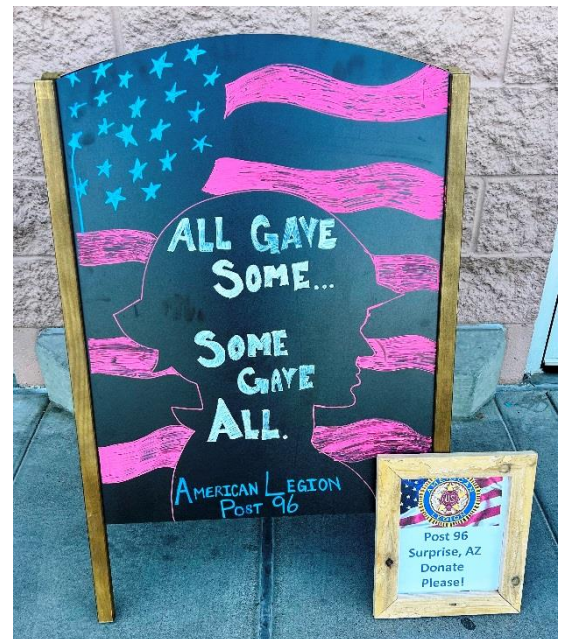 ALL GAVE
SOME...
SOME
GAVE
ALL.
AMERICAN LEGION
POST 96
AMERICAN
LEGION
Post 96
Surprise, AZ
Donate
Please!